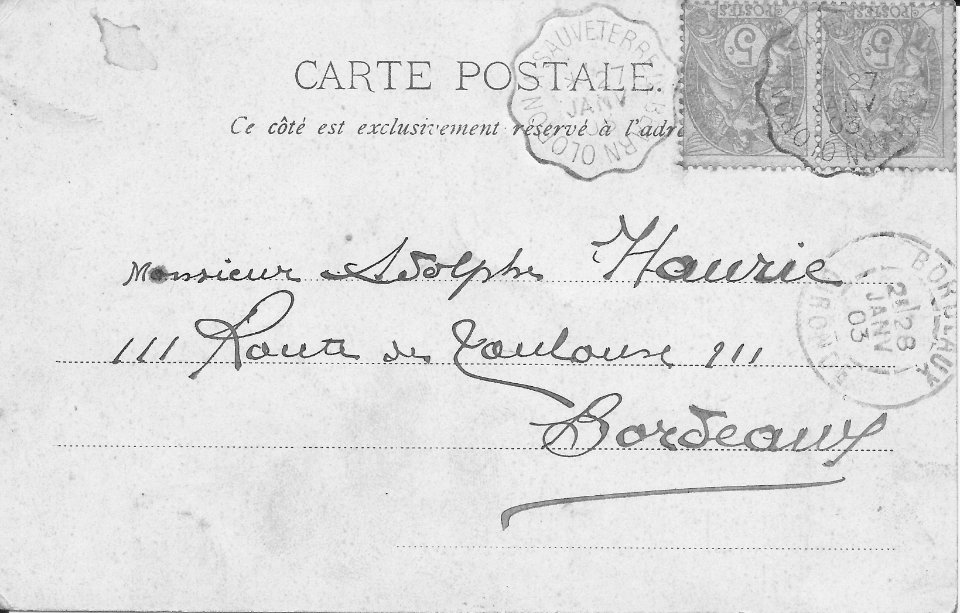 CARTE POSTALE.
Ce côté est exclusivement réservé à l'adre
SAUVETERRE BEARN OLORON
27
JANV
03
POSTES
5c
POSTES
5c
27
JANV
03
OLORON
Monsieur Adolphe Haurie
111 Route de Toulouse 111
Bordeaux
BORDEAUX GIRONDE
28
JANV
03